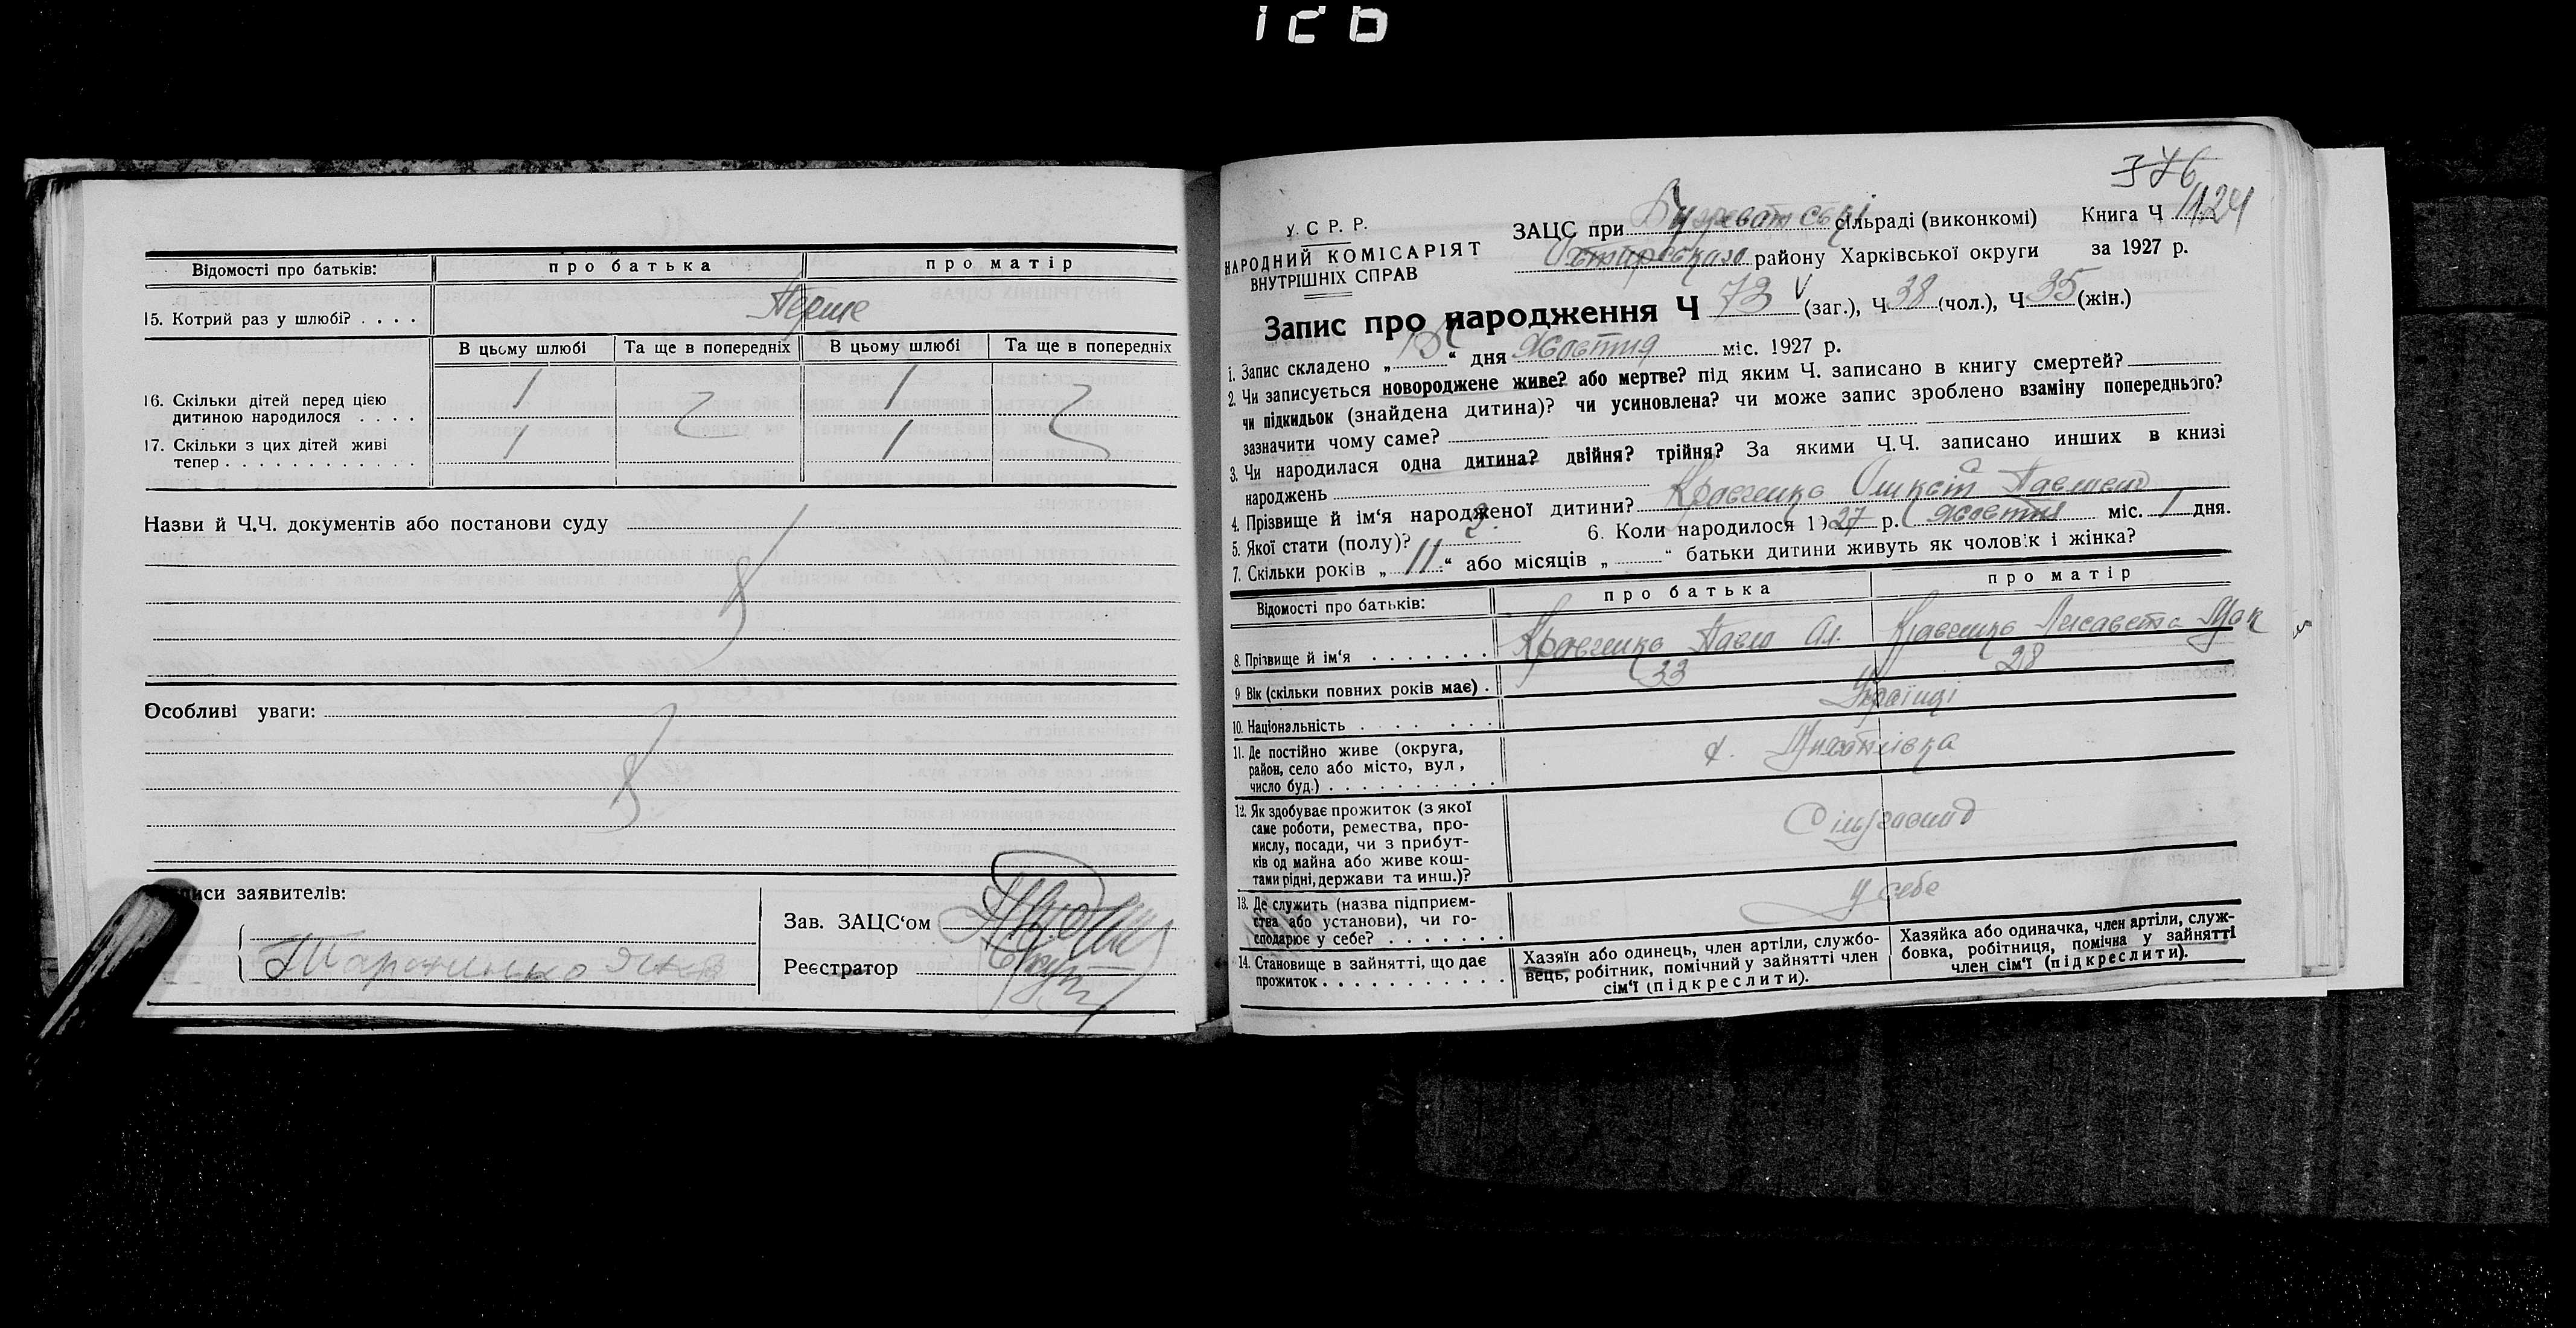 126
Відомості про батьків: про батька про матір
15. Котрий раз у шлюбі? . . . . Перше
В цьому шлюбі Та ще в попередніх В цьому шлюбі Та ще в попередніх
16. Скільки дітей перед цією 1 1
дитиною народилося . . . .
17. Скільки з цих дітей живі 1 1
тепер . . . . . . . . . . . .
Назви й Ч.Ч. документів або постанови суду
Особливі уваги:
писи заявителів:
Зав. ЗАЦС‘ом
Реєстратор
376
У. С Р. Р.
НАРОДНИЙ КОМІСАРІЯТ
ВНУТРІШНІХ СПРАВ
ЗАЦС при сільраді (виконкомі) Книга Ч 1124
району Харківської округи за 1927 р.
Запис про народження Ч 73 (заг.), Ч 38 (чол.), Ч 35 (жін.)
1. Запис складено „ “ дня Жовтня міс. 1927 р.
2. Чи записується новороджене живе? або мертве? під яким Ч. записано в книгу смертей?
чи підкидьок (знайдена дитина)? чи усиновлена? чи може запис зроблено взаміну попереднього?
зазначити чому саме?
3. Чи народилася одна дитина? двійня? трійня? За якими Ч.Ч. записано инших в книзі
народжень
4. Прізвище й ім‘я народженої дитини? Кравченко
5. Якої стати (полу)? 6. Коли народилося 1927 р. Жовтня міс. 1 дня.
7. Скільки років „ 11 “ або місяців „ “ батьки дитини живуть як чоловік і жінка?
Відомості про батьків: про батька про матір
8. Прізвище й ім‘я . . . . . . . Кравченко Павло Ол. Кравченко Лисавета Мак
9. Вік (скільки повних років має) . 33 28
10. Національність . . . . . . . Українці
11. Де постійно живе (округа,
район, село або місто, вул,
число буд.) . . . . . . . . . .
12. Як здобуває прожиток (з якої
саме роботи, ремества, про-
мислу, посади, чи з прибут-
ків од майна або живе кош-
тами рідні, держави та инш.)?
13. Де служить (назва підприєм- у себе
ства або установи), чи го-
сподарює у себе? . . . . . . .
14. Становище в зайнятті, що дає
прожиток . . . . . . . . . . .
Хазяїн або одинець, член артіли, службо-
вець, робітник, помічний у зайнятті член
сім‘ї (підкреслити).
Хазяйка або одиначка, член артіли, служ-
бовка, робітниця, помічна у зайнятті
член сім‘ї (підкреслити).